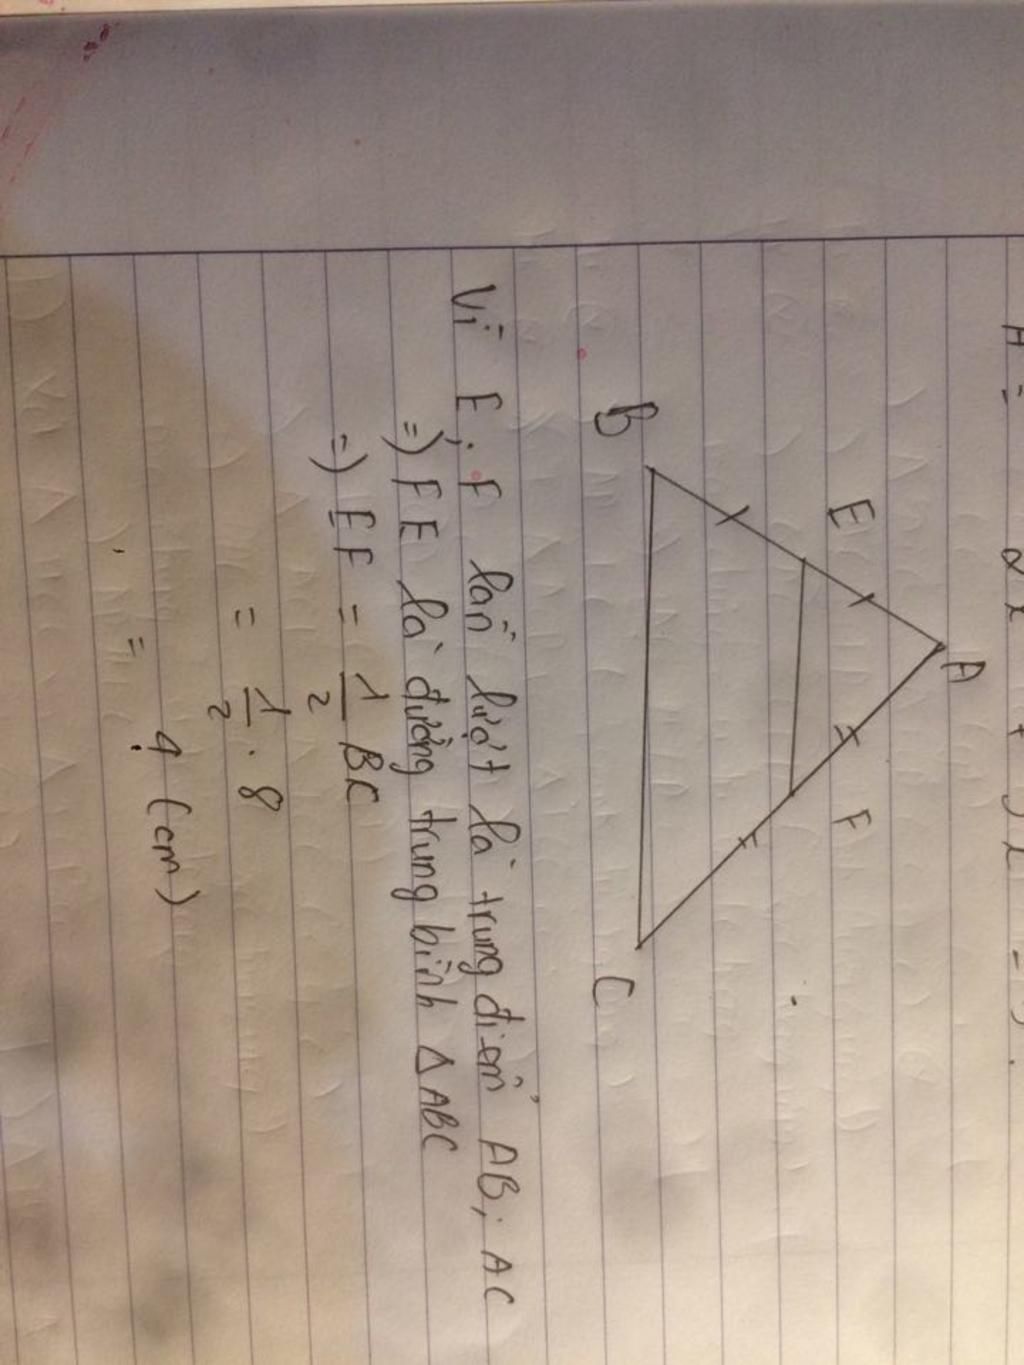 A
E
F
B
C
Vì E; F lần lượt là trung điểm AB; AC
=) FE là đường trung bình Δ ABC
=) EF = 1/2 BC
= 1/2 . 8
= 4 (cm)